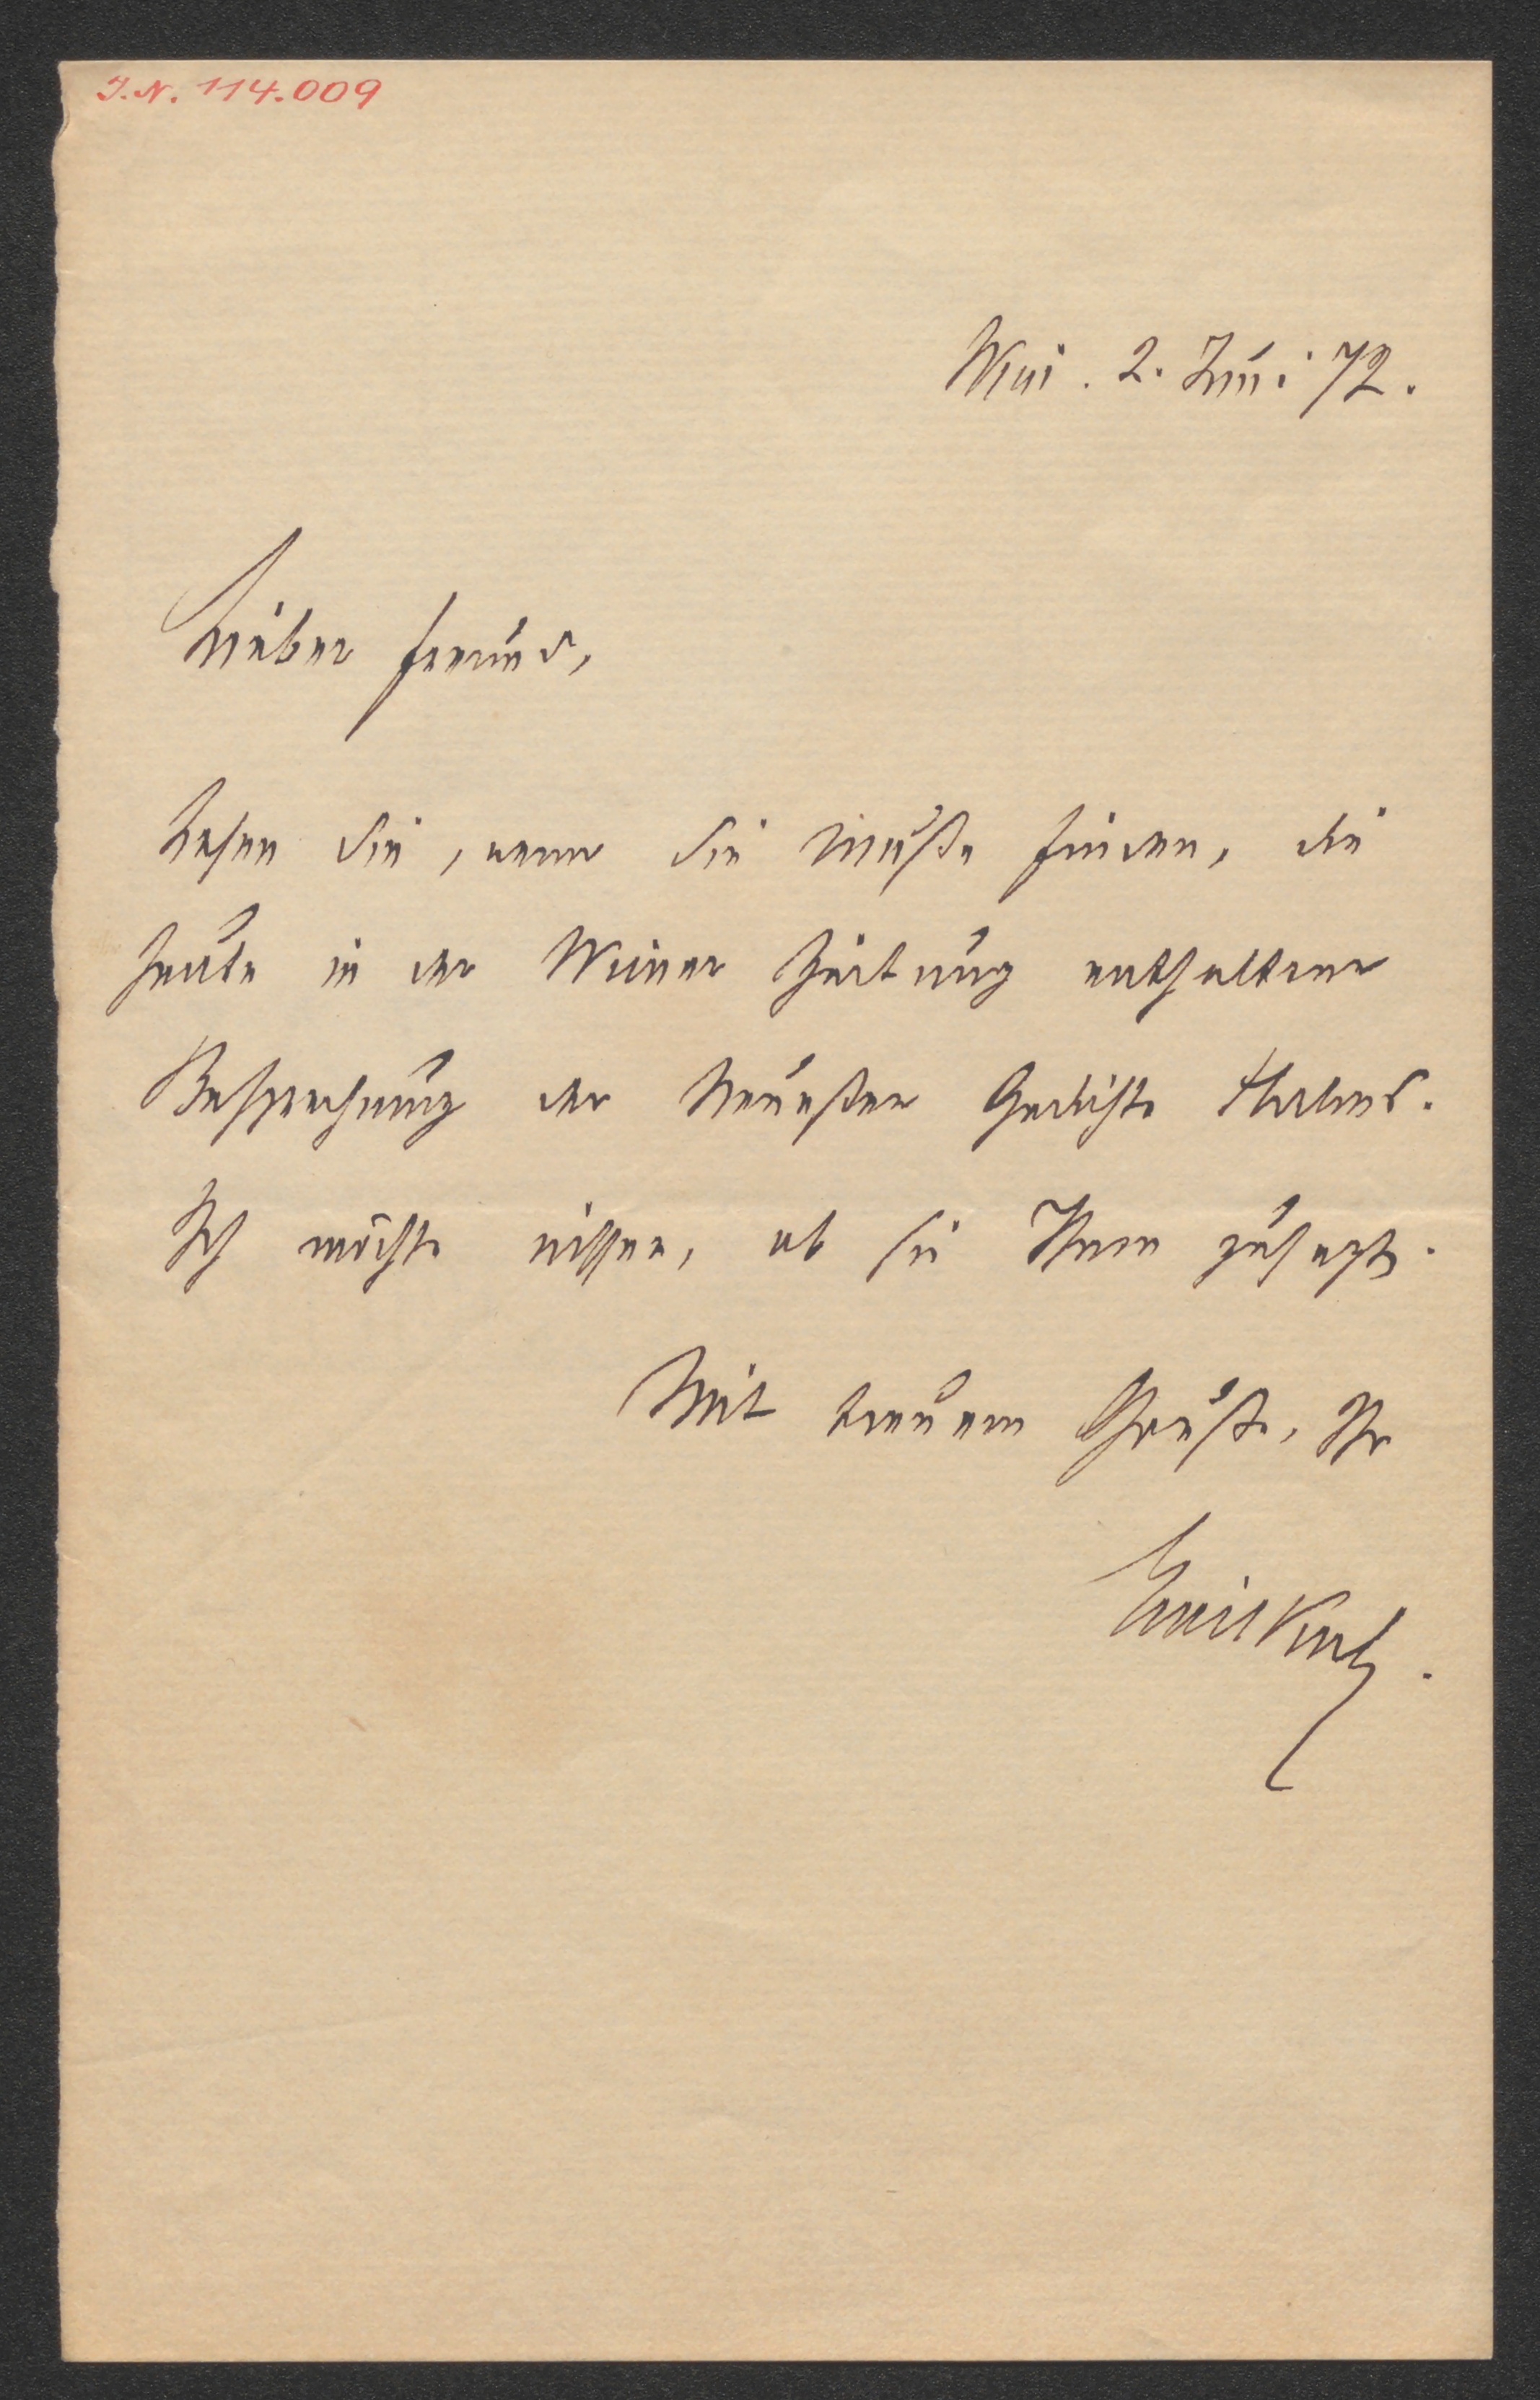 J.N. 114.009
Wien. 2. Juni 72.
Lieber Freund,
Lesen Sie, wenn Sie Muße finden, die
heute in der Wiener Zeitung enthaltene
Besprechung der neuesten Gedichte
Ich möchte wissen, ob sie Ihnen zusagt.
Mit treuem Gruße, Ihr
Emil Kuh.